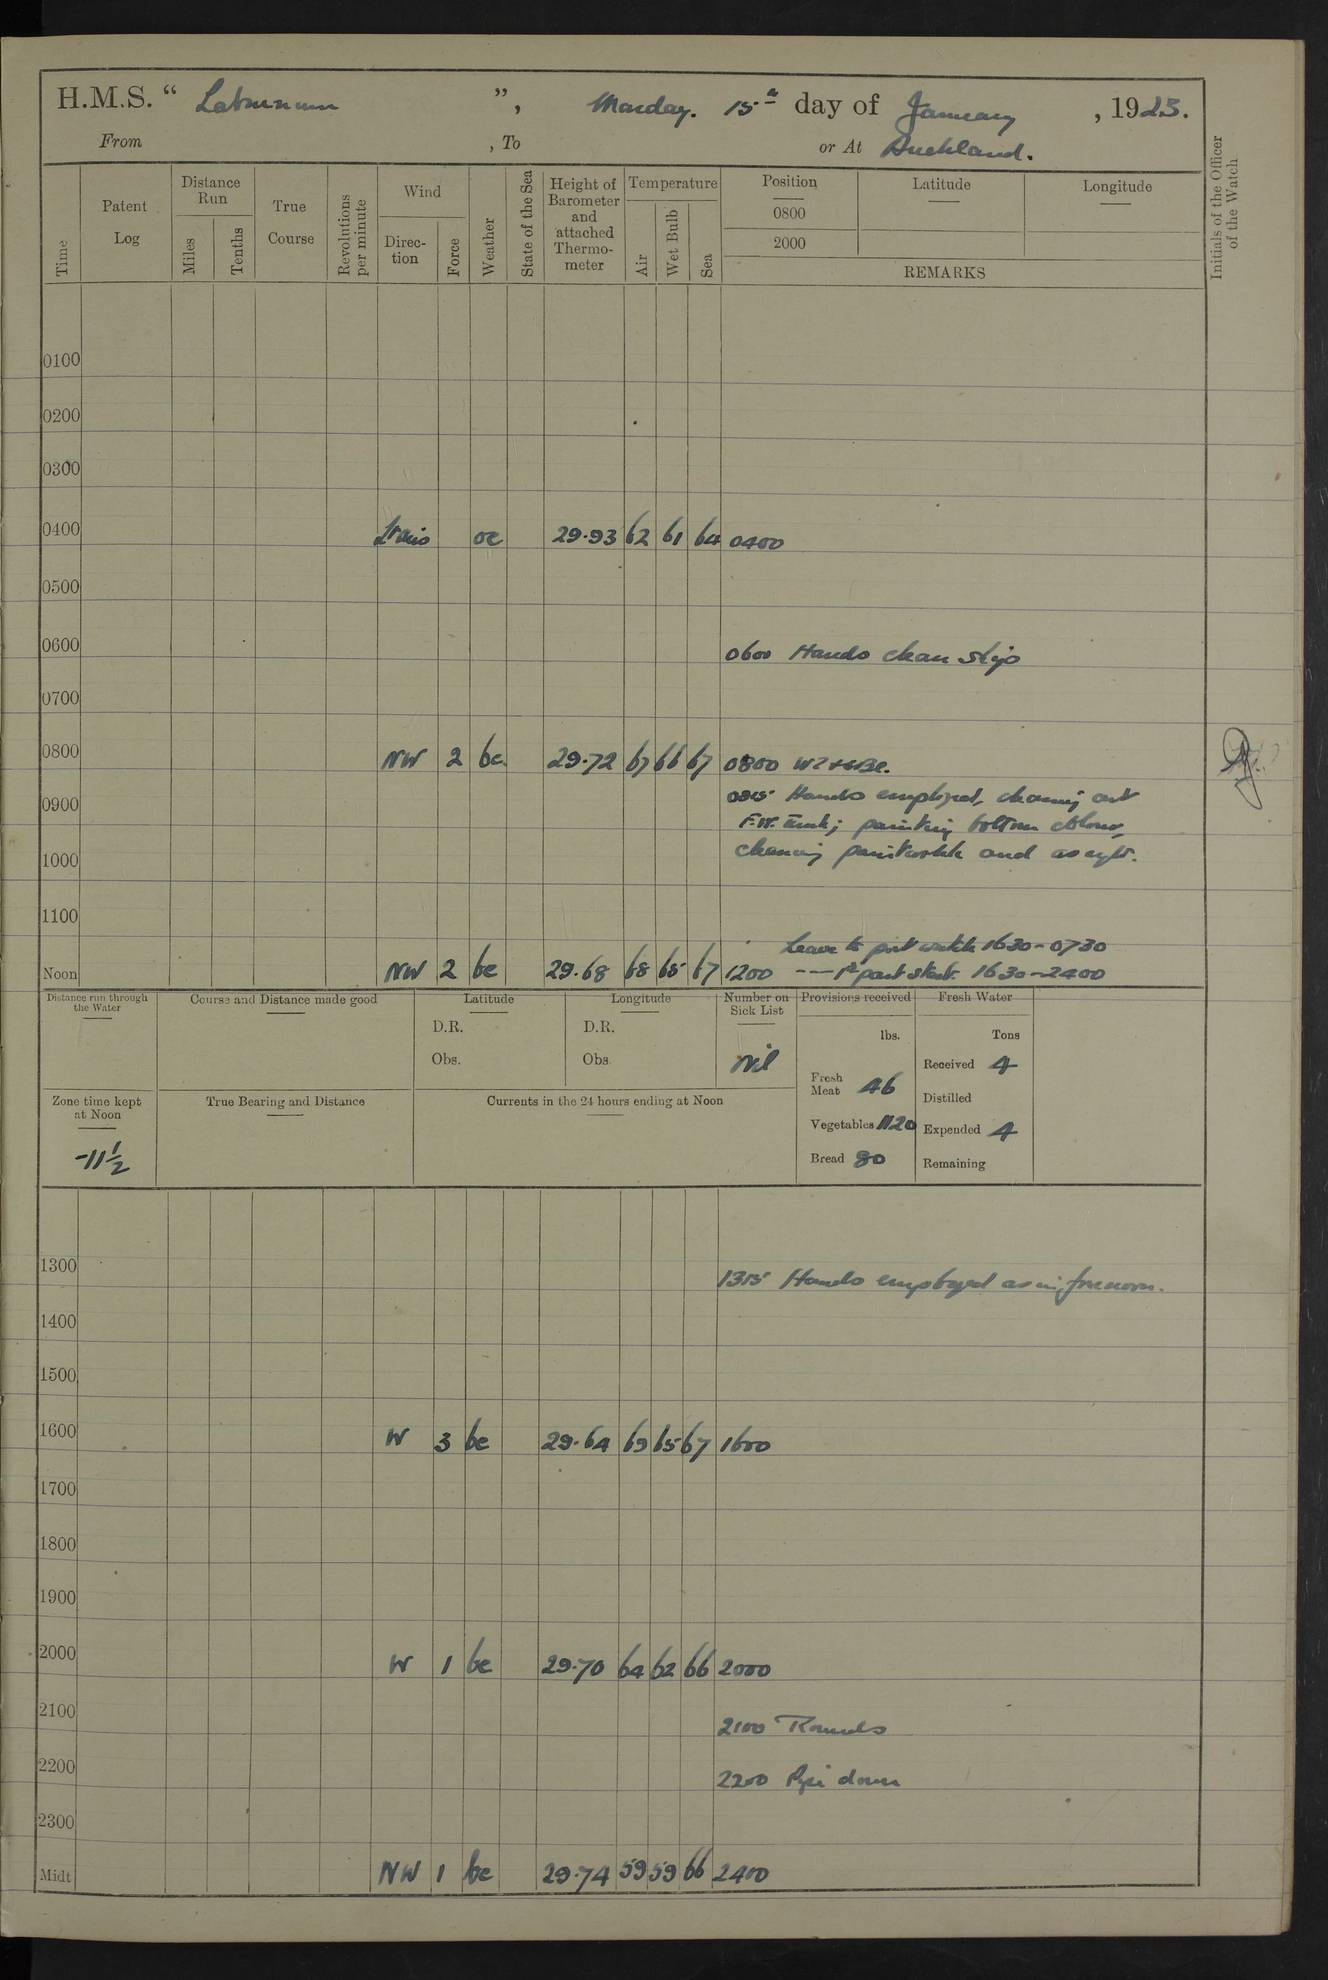 H.M.S. “ Laburnum ”, Monday. 15th day of January , 1923.
From , To or At Auckland.
Time
Patent Log
Distance Run
Miles
Tenths
True Course
Revolutions per minute
Wind
Direc-tion
Force
Weather
State of the Sea
Height of Barometer and attached Thermo-meter
Temperature
Air
Wet Bulb
Sea
Position
0800
2000
Latitude
Longitude
REMARKS
Initials of the Officer of the Watch
0100
0200
0300
0400 oc 29.93 62 61 64 0400
0500
0600 0600 Hands clean ship
0700
0800 NW 2 bc 29.72 67 66 67 0800
0900 0815 Hands employed, cleaning out
F.W. tank; painting bottom colour,
1000 cleaning paintwork and as reqte.
1100
Leave to port watch 1630-0730
Noon NW 2 bc 29.68 68 65 67 1200 -- 1st part starb. 1630-2400
Distance run through the Water
Course and Distance made good
Latitude
D.R.
Obs.
Longitude
D.R.
Obs.
Number on Sick List
Nil
Provisions received
lbs.
Fresh Meat 46
Vegetables 1120
Bread 80
Fresh Water
Tons
Received 4
Distilled
Expended 4
Remaining
Zone time kept at Noon
-11½
True Bearing and Distance
Currents in the 24 hours ending at Noon
1300 1315 Hands employed as in forenoon.
1400
1500
1600 W 3 bc 29.64 69 65 67 1600
1700
1800
1900
2000 W 1 bc 29.70 64 62 66 2000
2100 2100 Rounds
2200 2200 Pipe down
2300
Midt NW 1 bc 29.74 59 59 66 2400